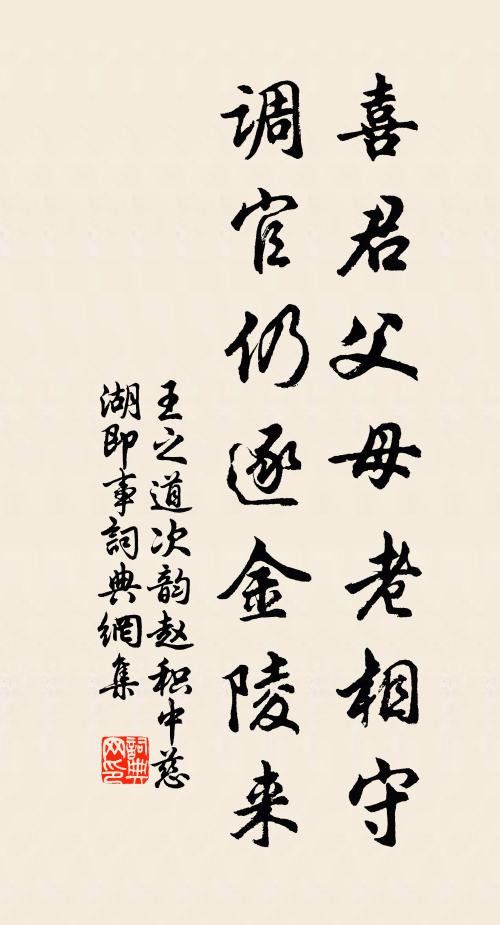 喜君父母老相守
调官仍逐金陵来
王之道次韵赵积中慈
湖即事詞典網集
詞典
网印